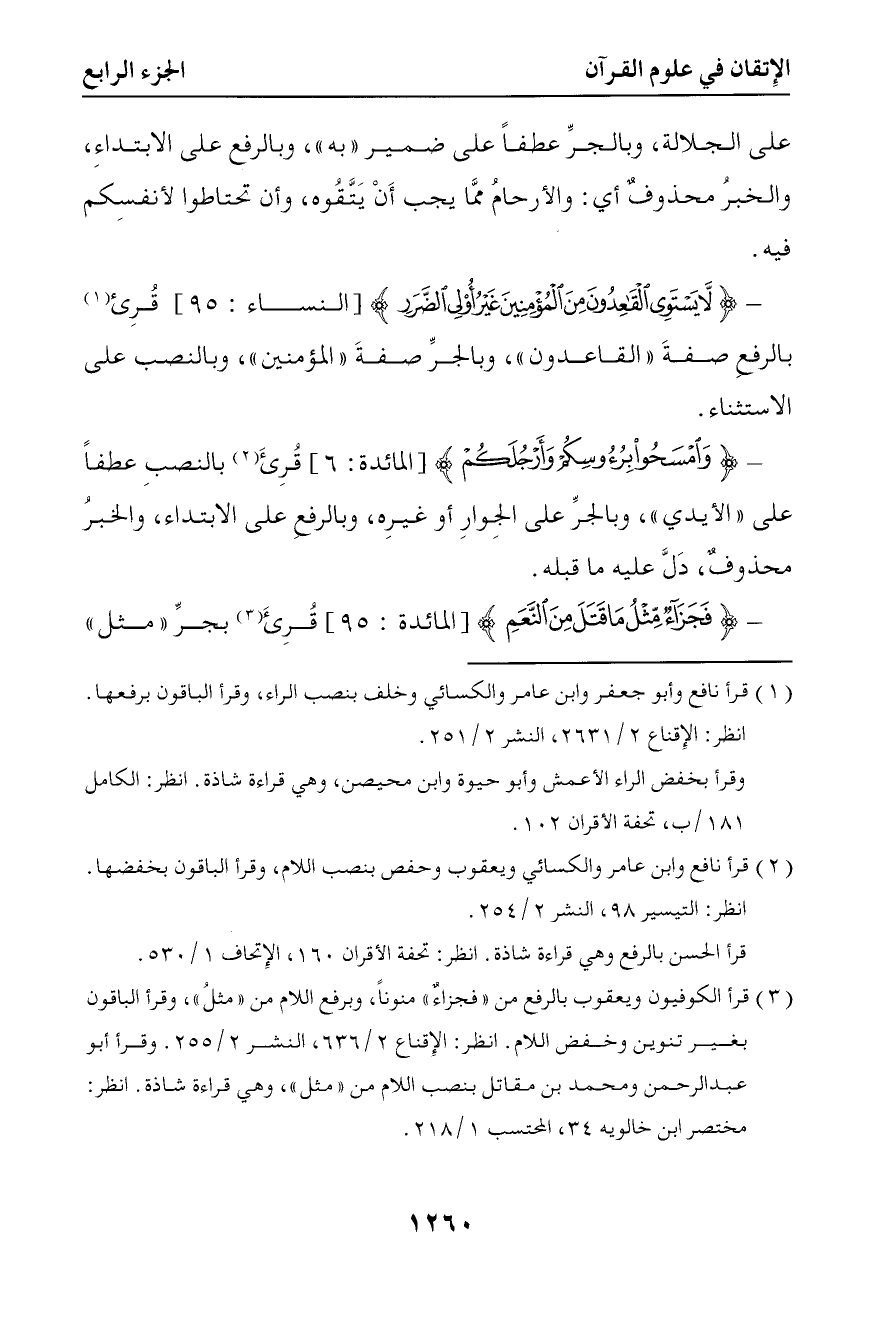 الإتقان في علوم القرآن
الجزء الرابع
على الجلالة، وبالجرِّ عطفاً على ضمير «به»، وبالرفع على الابتداءِ،
والخبرُ محذوفٌ أي: والأرحامُ ممَّا يجب أَنْ يَتَّقُوه، وأن تحتاطوا لأنفسِكم
فيه.
– ﴿ لَّا يَسْتَوِى الْقَاعِدُونَ مِنَ الْمُؤْمِنِينَ غَيْرُ أُوْلِى الضَّرَرِ ﴾ [النساء: ٩٥] قُرِئَ(١)
بالرفعِ صفةَ «القاعدون»، وبالجرِّ صفةَ «المؤمنين»، وبالنصب على
الاستثناء.
– ﴿ وَامْسَحُوا بِرُءُوسِكُمْ وَأَرْجُلَكُمْ ﴾ [المائدة: ٦] قُرِئَ(٢) بالنصبِ عطفاً
على «الأيدي»، وبالجرِّ على الجِوارِ أو غيرِه، وبالرفعِ على الابتداء، والخبرُ
محذوفٌ، دَلَّ عليه ما قبله.
– ﴿ فَجَزَآءٌ مِّثْلُ مَا قَتَلَ مِنَ النَّعَمِ ﴾ [المائدة: ٩٥] قُرِئَ(٣) بجرِّ «مثل»
(١) قرأ نافع وأبو جعفر وابن عامر والكسائي وخلف بنصب الراء، وقرأ الباقون برفعها.
انظر: الإقناع ٢/ ٢٦٣١، النشر ٢/ ٢٥١.
وقرأ بخفض الراء الأعمش وأبو حيوة وابن محيصن، وهي قراءة شاذة. انظر: الكامل
١٨١/ب، تحفة الأقران ١٠٢.
(٢) قرأ نافع وابن عامر والكسائي ويعقوب وحفص بنصب اللام، وقرأ الباقون بخفضها.
انظر: التيسير ٩٨، النشر ٢/ ٢٥٤.
قرأ الحسن بالرفع وهي قراءة شاذة. انظر: تحفة الأقران ١٦٠، الإتحاف ١/ ٥٣٠.
(٣) قرأ الكوفيون ويعقوب بالرفع من «فجزاءٌ» منوناً، وبرفع اللام من «مثلُ»، وقرأ الباقون
بغير تنوين وخفض اللام. انظر: الإقناع ٢/ ٦٣٦، النشر ٢/ ٢٥٥. وقرأ أبو
عبدالرحمن ومحمد بن مقاتل بنصب اللام من «مثل»، وهي قراءة شاذة. انظر:
مختصر ابن خالويه ٣٤، المحتسب ١/ ٢١٨.
١٢٦٠